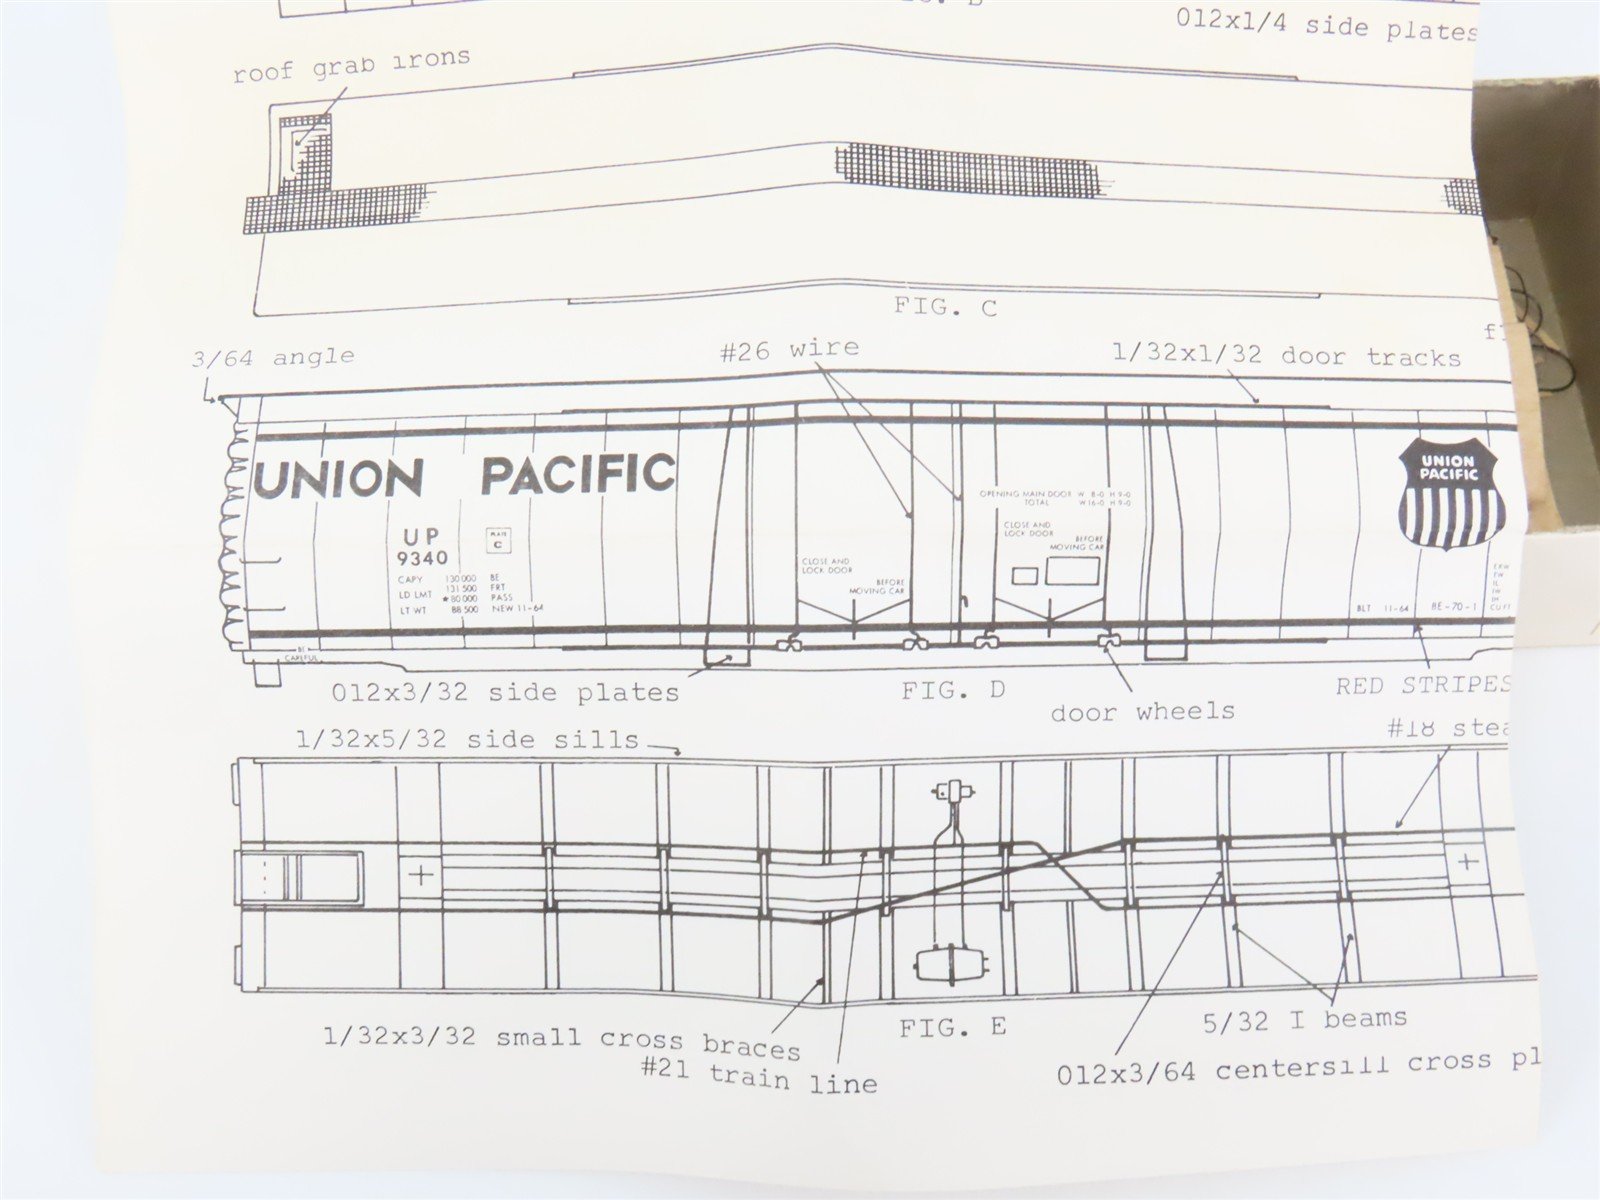 012x1/4 side plates
roof grab irons
FIG. C
3/64 angle
#26 wire
1/32x1/32 door tracks
UNION PACIFIC
UNION
PACIFIC
OPENING MAIN DOOR W 8-0 H 9-0
TOTAL W 16-0 H 9-0
UP
9340
PLATE
C
CLOSE AND
LOCK DOOR
BEFORE
MOVING CAR
CLOSE AND
LOCK DOOR
BEFORE
MOVING CAR
CAPY 130000 BE
LD LMT 131500 FRT
★80000 PASS
LT WT 88500 NEW 11-64
BLT 11-64 BE-70-1
EXW
EW
IL
IW
IH
CU FT
BE
CAREFUL
012x3/32 side plates
FIG. D
RED STRIPES
door wheels
1/32x5/32 side sills
#18 stea
FIG. E
5/32 I beams
1/32x3/32 small cross braces
#21 train line
012x3/64 centersill cross pl